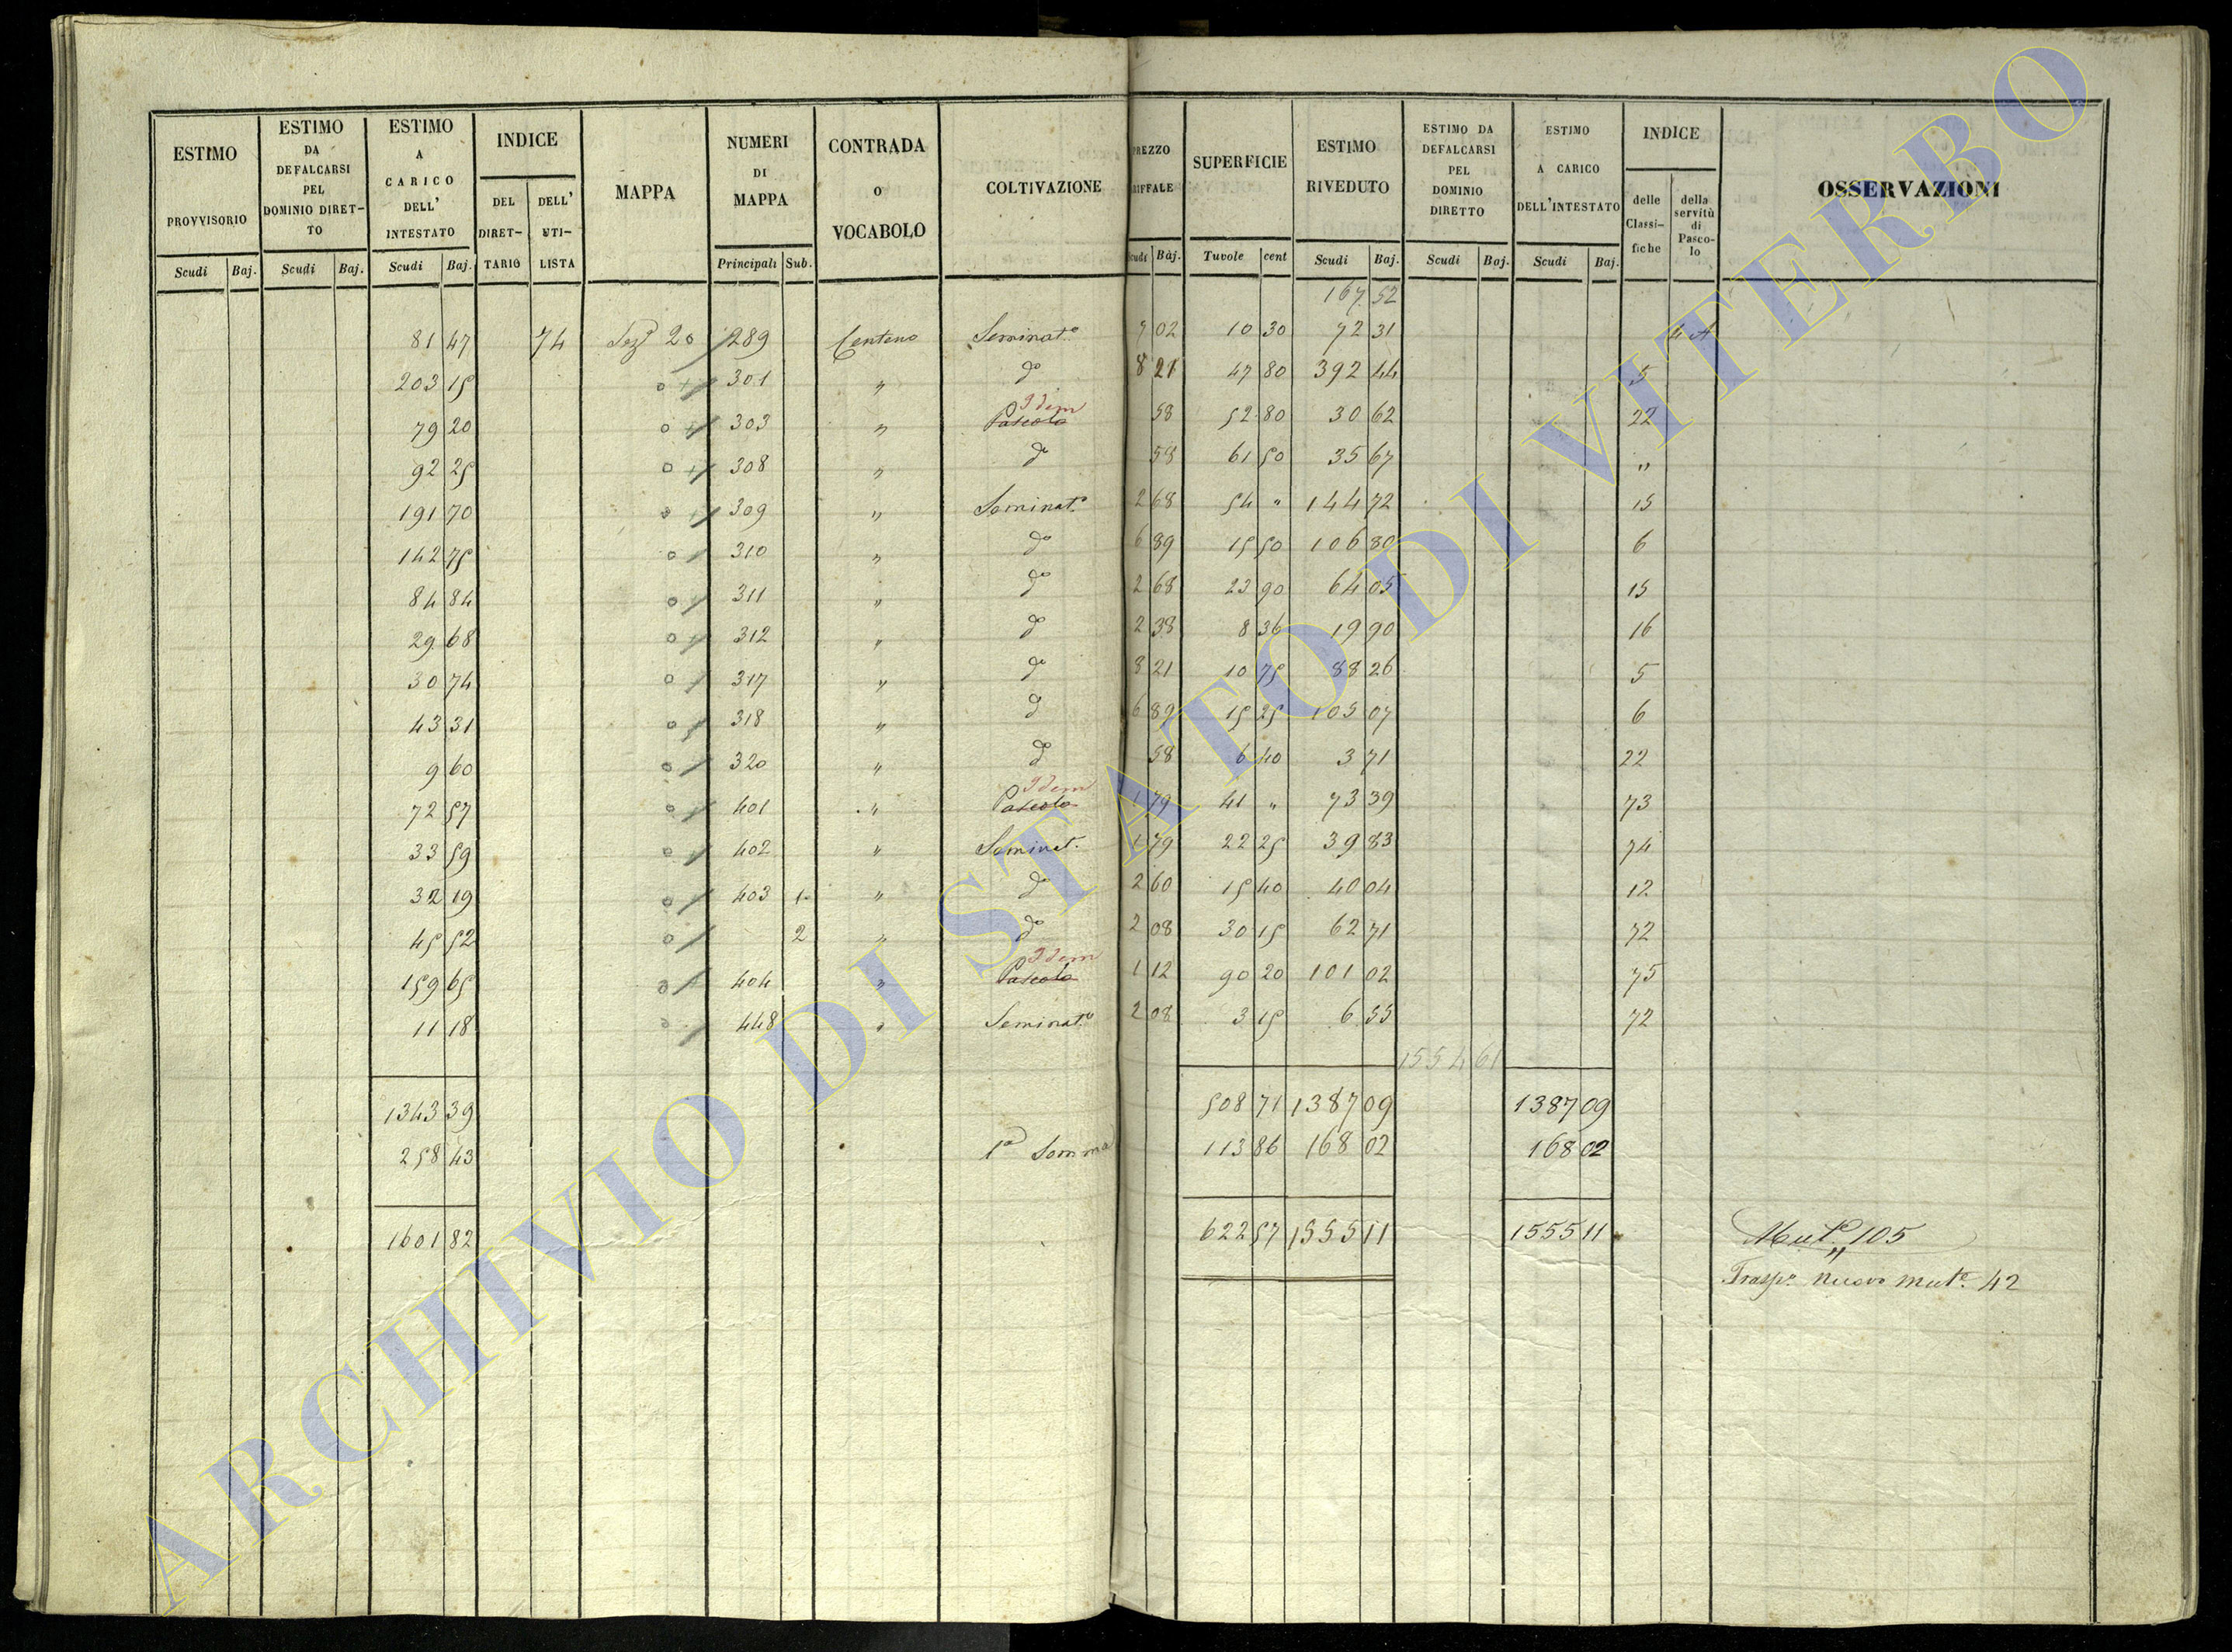 ESTIMO PROVVISORIO Scudi Baj.
ESTIMO DA DEFALCARSI PEL DOMINIO DIRET- TO Scudi Baj.
ESTIMO A CARICO DELL' INTESTATO Scudi Baj.
INDICE DEL DIRET- TARIO DELL' UTI- LISTA
MAPPA
NUMERI DI MAPPA Principali Sub.
CONTRADA O VOCABOLO
COLTIVAZIONE
PREZZO RIFFALE Scudi Baj.
SUPERFICIE Tavole cent
ESTIMO RIVEDUTO Scudi Baj.
ESTIMO DA DEFALCARSI PEL DOMINIO DIRETTO Scudi Baj.
ESTIMO A CARICO DELL'INTESTATO Scudi Baj.
INDICE delle Classi- fiche della servitù di Pasco- lo
OSSERVAZIONI
167 52
81 47 74 Sezᵉ 20 289 Centeno Seminatº 7 02 10 30 72 31 4 A
203 15 301 " dº 8 21 47 80 392 44 5
79 20 303 " Pascolo Idem 58 52 80 30 62 22
92 25 308 " dº 58 61 50 35 67 "
191 70 309 " Seminatº 2 68 54 " 144 72 15
142 75 310 " dº 6 89 15 50 106 80 6
84 84 311 " dº 2 68 23 90 64 05 15
29 68 312 " dº 2 38 8 36 19 90 16
30 74 317 " dº 8 21 10 75 88 26 5
43 31 318 " dº 6 89 15 25 105 07 6
9 60 320 " dº 58 6 40 3 71 22
72 57 401 " Pascolo Idem 1 79 41 " 73 39 73
33 59 402 " Seminat. 1 79 22 25 39 83 74
32 19 403 1 " dº 2 60 15 40 40 04 12
45 52 2 " dº 2 08 30 15 62 71 72
159 65 404 " Pascolo Idem 1 12 90 20 101 02 75
11 18 448 " Seminatº 2 08 3 15 6 55 72
1554 61
1343 39 508 71 1387 09 1387 09
258 43 1ª Somma 113 86 168 02 168 02
1601 82 622 57 1555 11 1555 11 Mutᵉ 105
"
Traspº nuovo mutᵉ. 42
ARCHIVIO DI STATO DI VITERBO